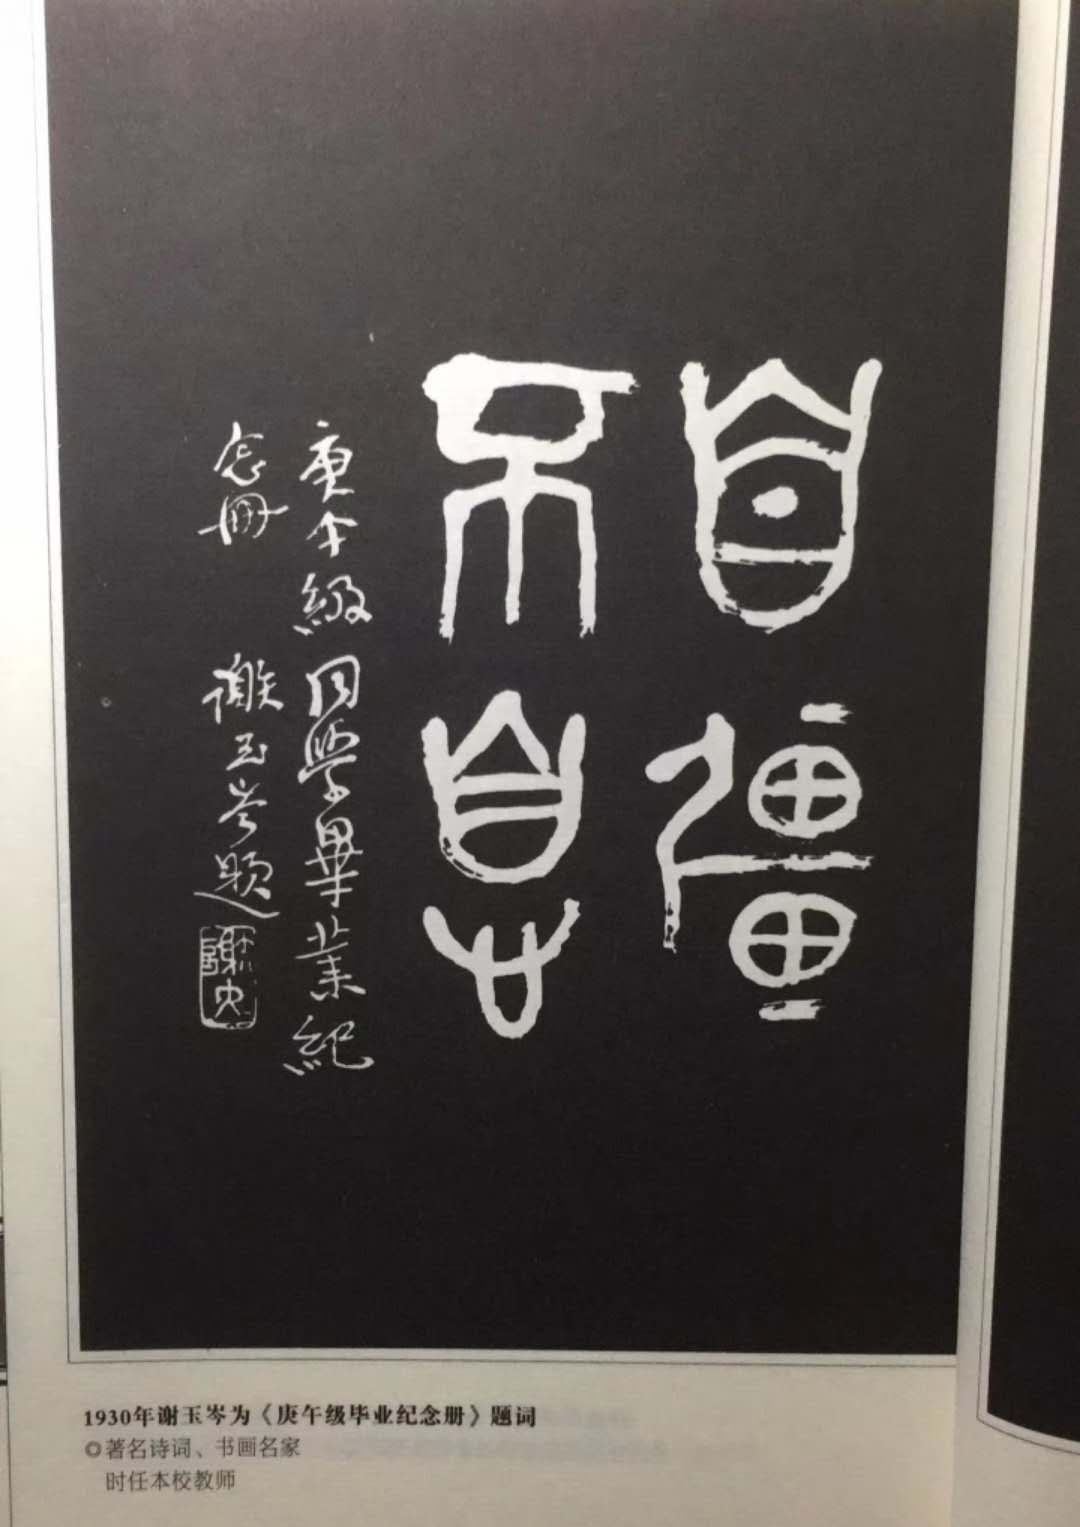 自彊
不息
庚午級同學畢業紀
念冊 謝玉岑題
1930年谢玉岑为《庚午级毕业纪念册》题词
◎著名诗词、书画名家
时任本校教师